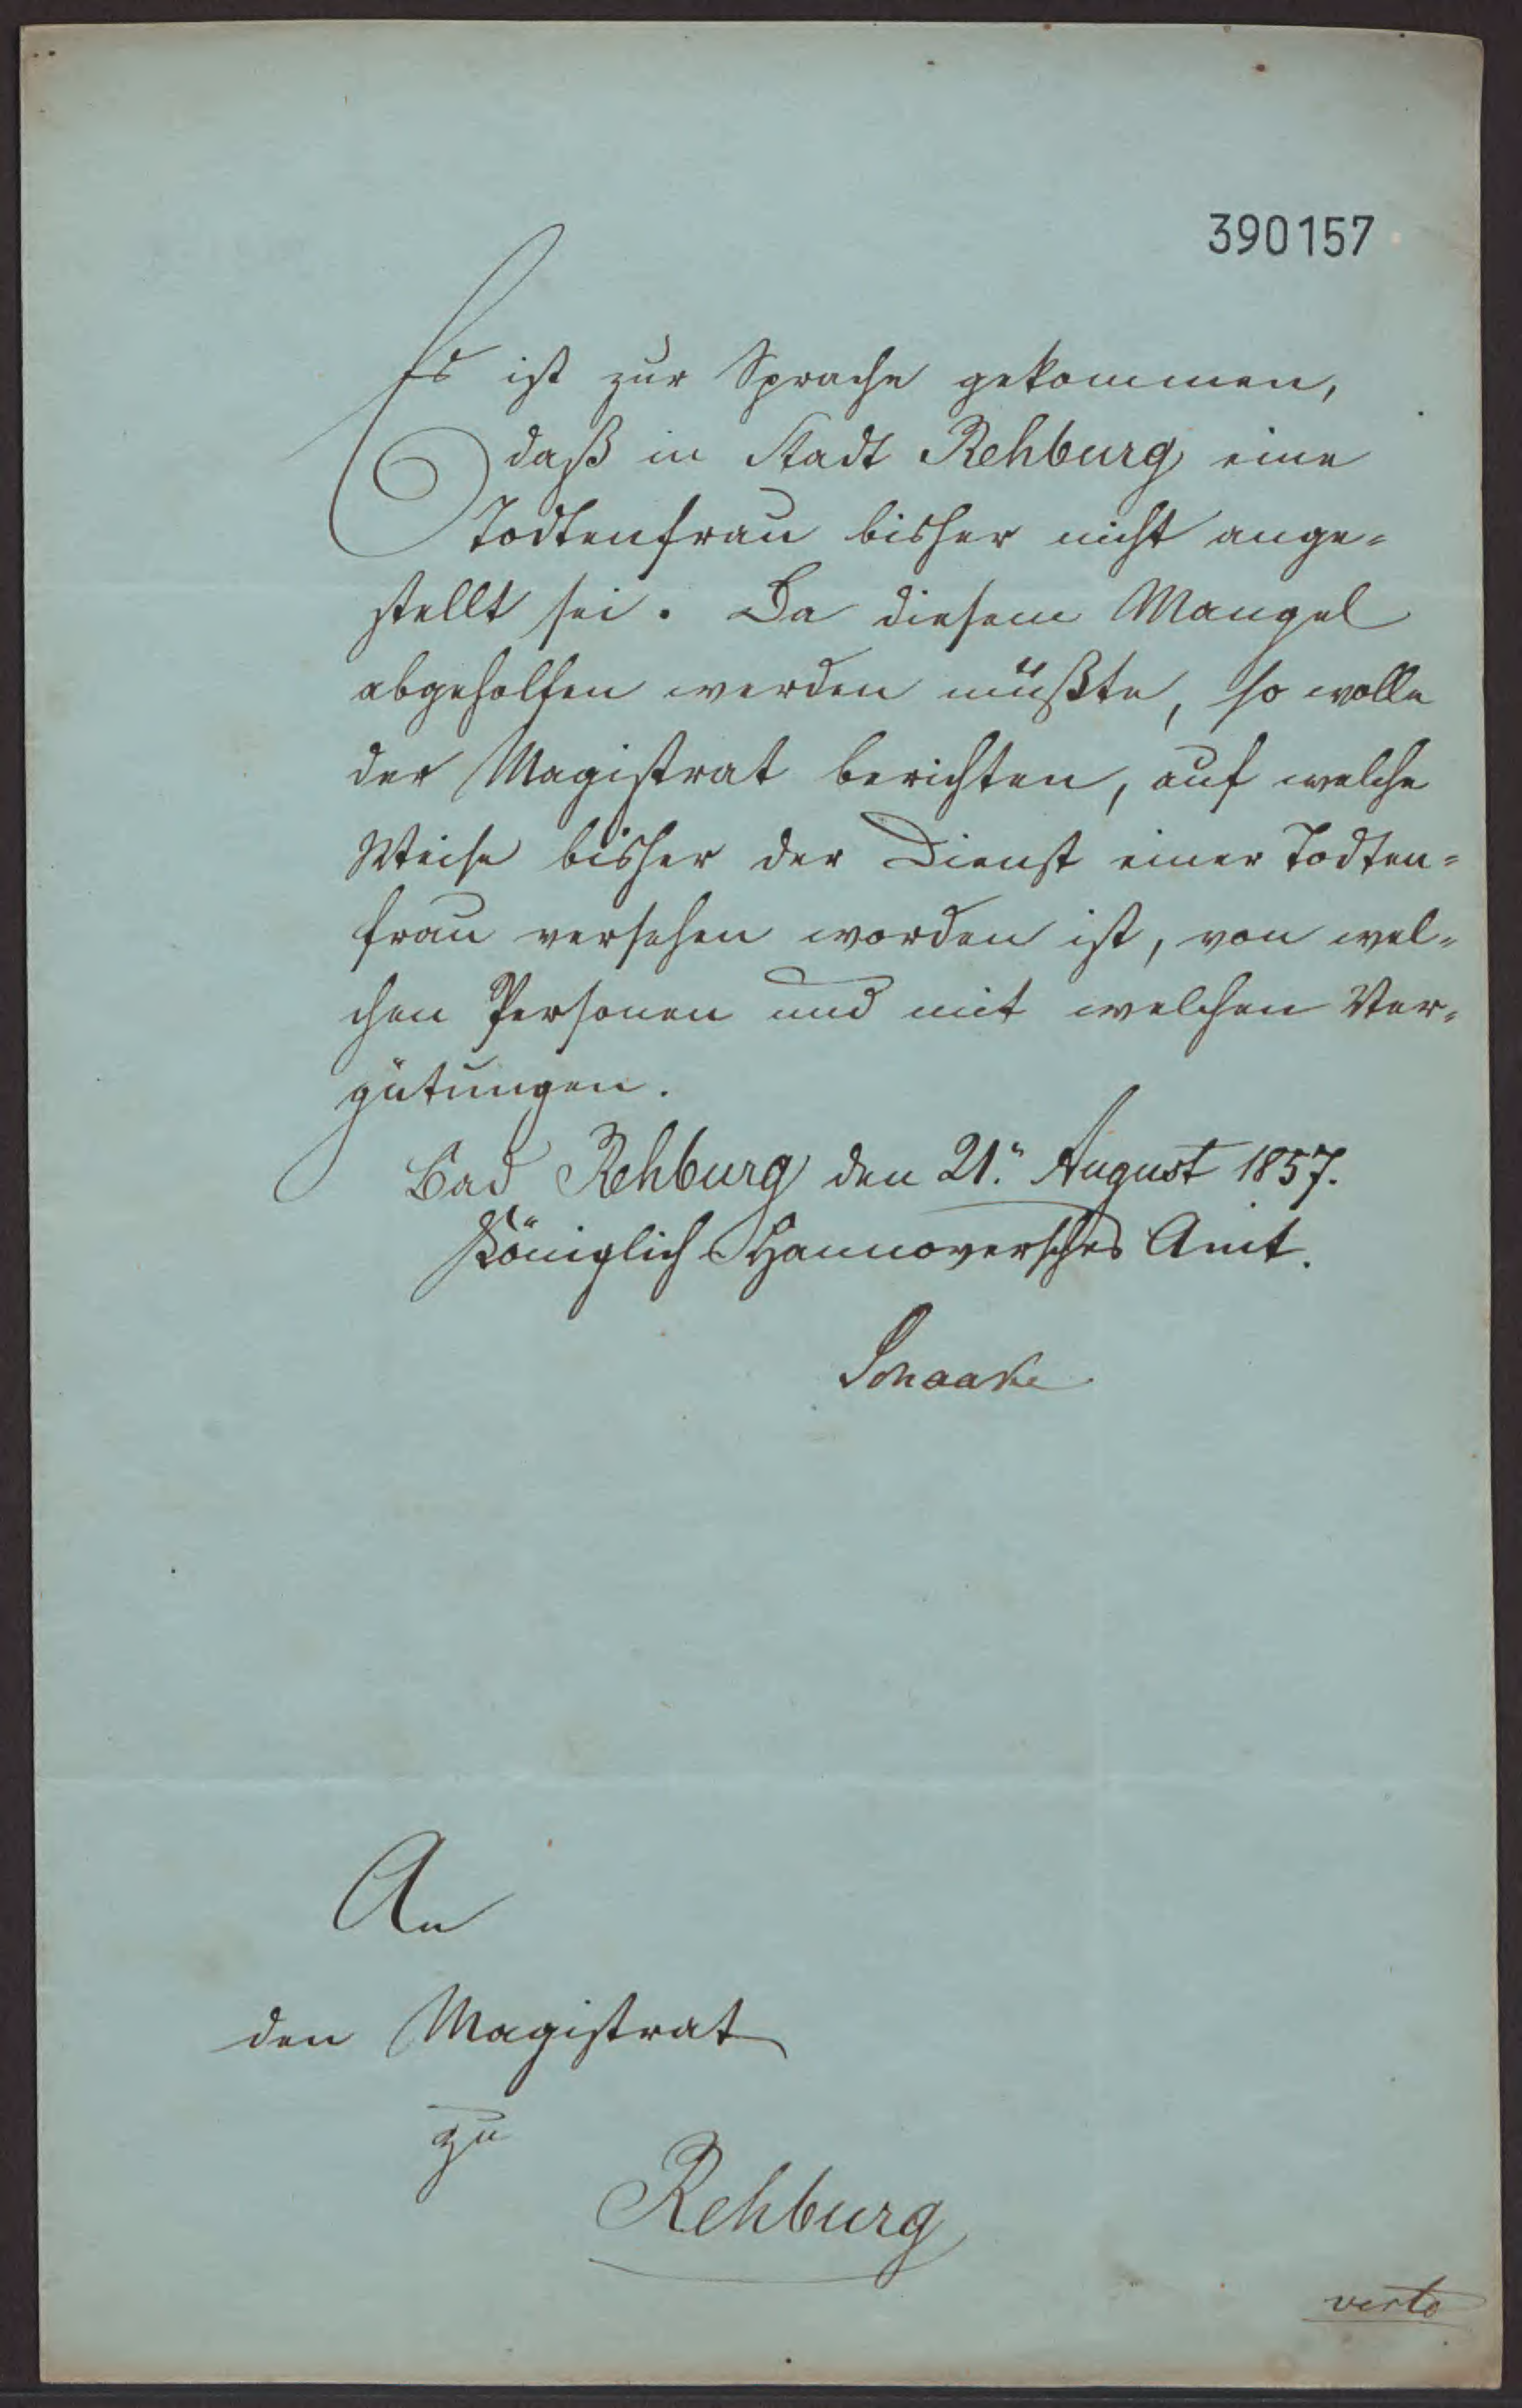 390157
Es ist zur Sprache gekommen,
daß in Stadt Rehburg eine
Todtenfrau bisher nicht ange-
stellt sei. Da diesem Mangel
abgeholfen werden müßte, so wolle
der Magistrat berichten, auf welche
Weise bisher der Dienst einer Todten-
frau versehen worden ist, von wel-
chen Personen und mit welchen Ver-
gütungen.
Bad Rehburg den 21. August 1857.
Königlich Hannoversches Amt.
Schaake
An
den Magistrat
zu
Rehburg
verte